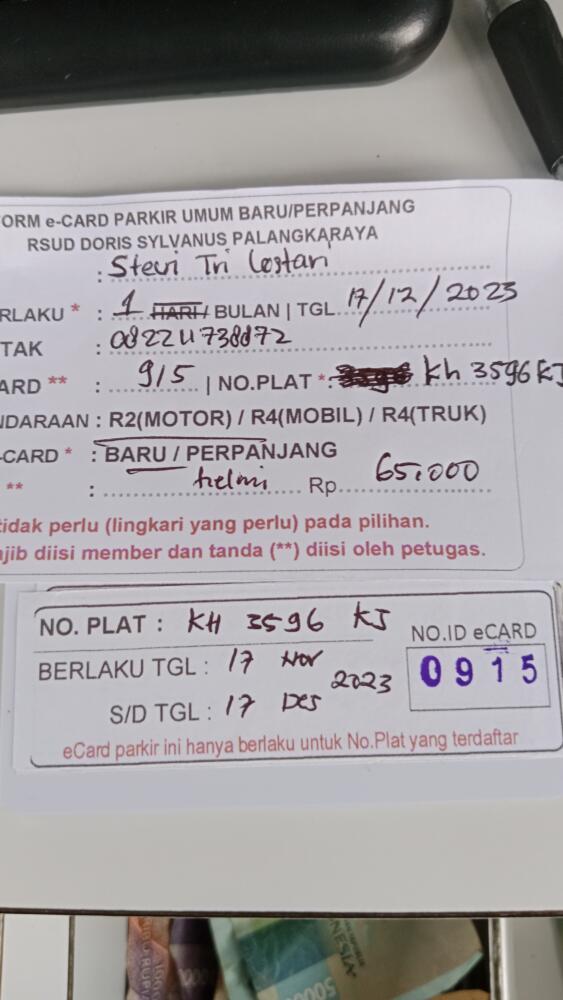 ORM e-CARD PARKIR UMUM BARU/PERPANJANG
RSUD DORIS SYLVANUS PALANGKARAYA
: Stevi Tri Lestari
RLAKU * : 1 HARI / BULAN | TGL 17/12/2023
TAK :
ARD ** : 915 | NO.PLAT * : kh 3596 KJ
NDARAAN : R2(MOTOR) / R4(MOBIL) / R4(TRUK)
-CARD * : BARU / PERPANJANG
** : helmi Rp. 65.000
tidak perlu (lingkari yang perlu) pada pilihan.
ajib diisi member dan tanda (**) diisi oleh petugas.
NO. PLAT : KH 3596 KJ
NO.ID eCARD
BERLAKU TGL : 17 Nov 2023
0915
S/D TGL : 17 Des
eCard parkir ini hanya berlaku untuk No.Plat yang terdaftar